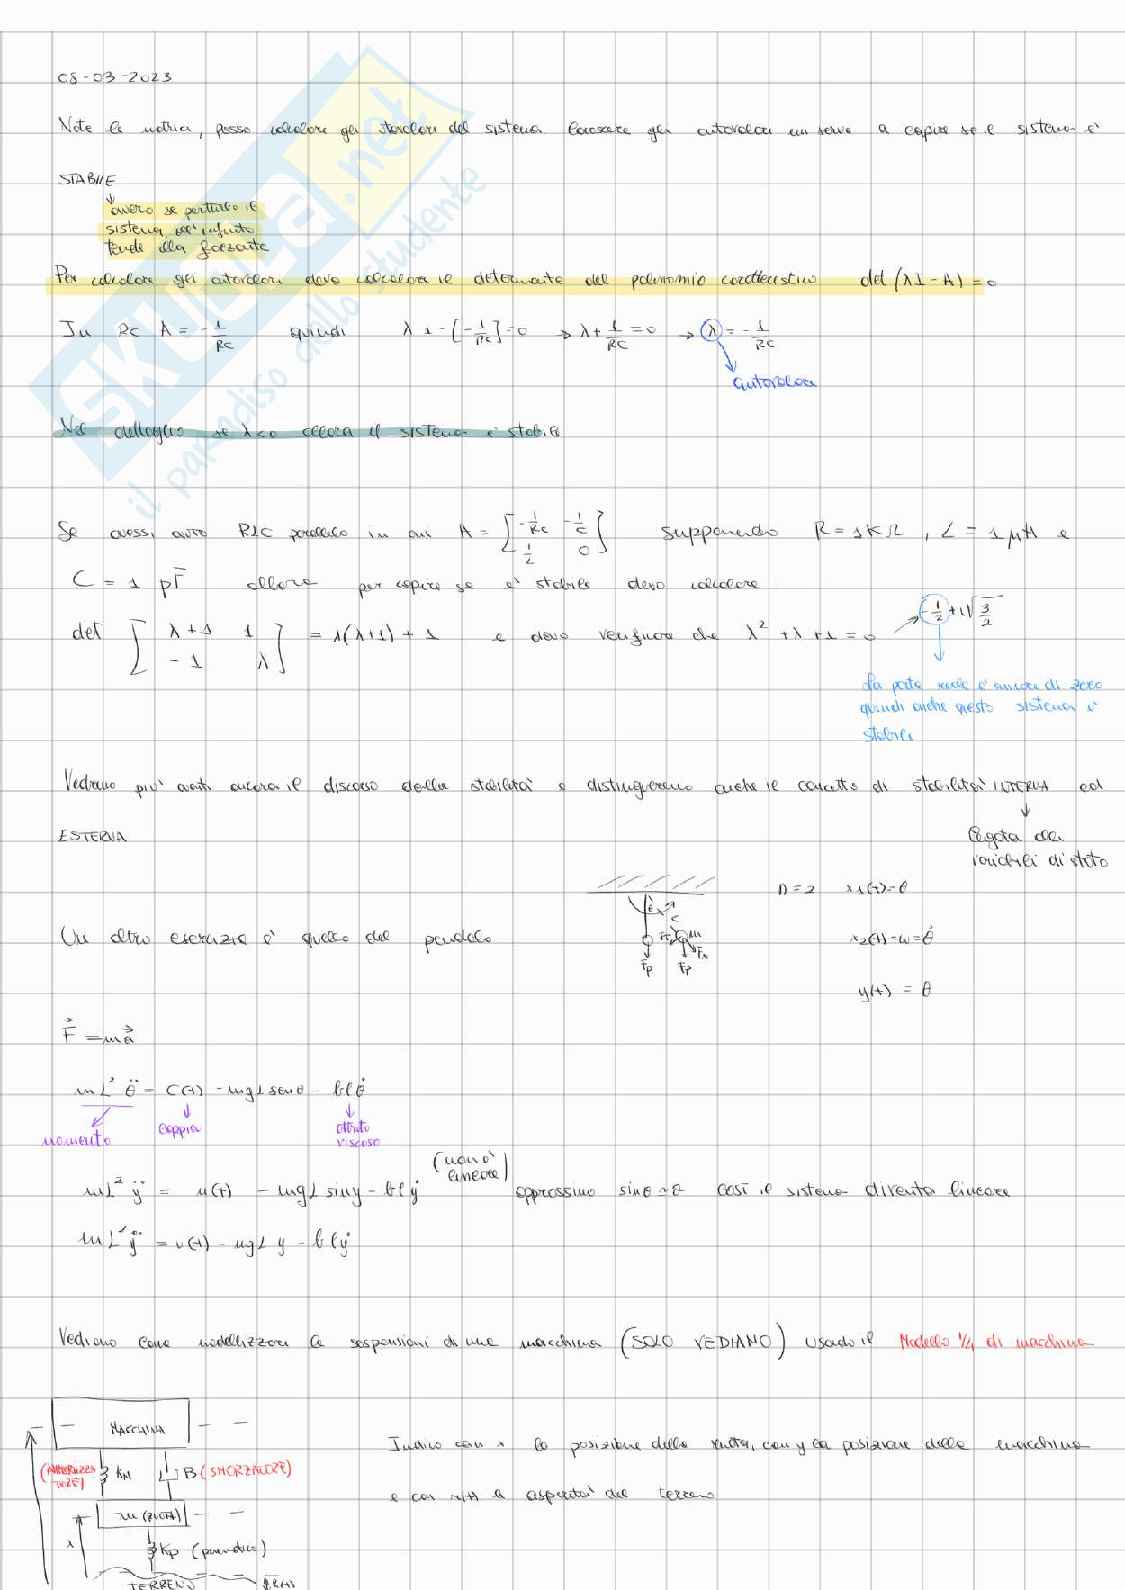 08-03-2023
Note le matrici, posso calcolare gli autovalori del sistema. Conoscere gli autovalori mi serve a capire se il sistema è
STABILE
ovvero se perturbo il
sistema all'infinito
tende alla forzante
Per calcolare gli autovalori devo calcolare il determinante del polinomio caratteristico det (λI - A) = 0
In RC A = -1/RC quindi λ1 - [-1/RC] = 0 → λ + 1/RC = 0 → λ = -1/RC
autovalori
Nel dettaglio se λ<0 allora il sistema è stabile
Se avessi avuto RLC parallelo in cui A = [-1/RC -1/C 1/L 0] supponendo R = 1KΩ, L = 1 μH e
C = 1 pF allora per capire se è stabile devo calcolare
det [λ+1 1 -1 λ] = λ(λ+1) + 1 e devo verificare che λ² + λ + 1 = 0 → -1/2 + i√3/2
La parte reale è minore di zero
quindi anche questo sistema è
stabile
Vedremo più avanti ancora il discorso della stabilità e distingueremo anche il concetto di stabilità INTERNA ed
ESTERNA
legata alle
variabili di stato
n=2 x1(t)=θ
Un altro esercizio è quello del pendolo
x2(t)=ω=θ̇
Fp Fp
y(t) = θ
F = ma
mL² θ̈ = C(t) - mgL senθ - blθ̇
momento coppia attrito
viscoso
mL² ÿ = u(t) - mgL siny - blẏ (non è lineare) approssimo sinθ ≈ θ così il sistema diventa lineare
mL² ÿ = u(t) - mgL y - blẏ
Vediamo come modellizzare le sospensioni di una macchina (SOLO VEDIAMO) usando il Modello 1/4 di macchina
MACCHINA
Indico con x la posizione della ruota, con y la posizione della macchina
KM B (SMORZATORE)
e con u(t) le asperità del terreno
m (RUOTA)
x Kp (pneumatico)
TERRENO